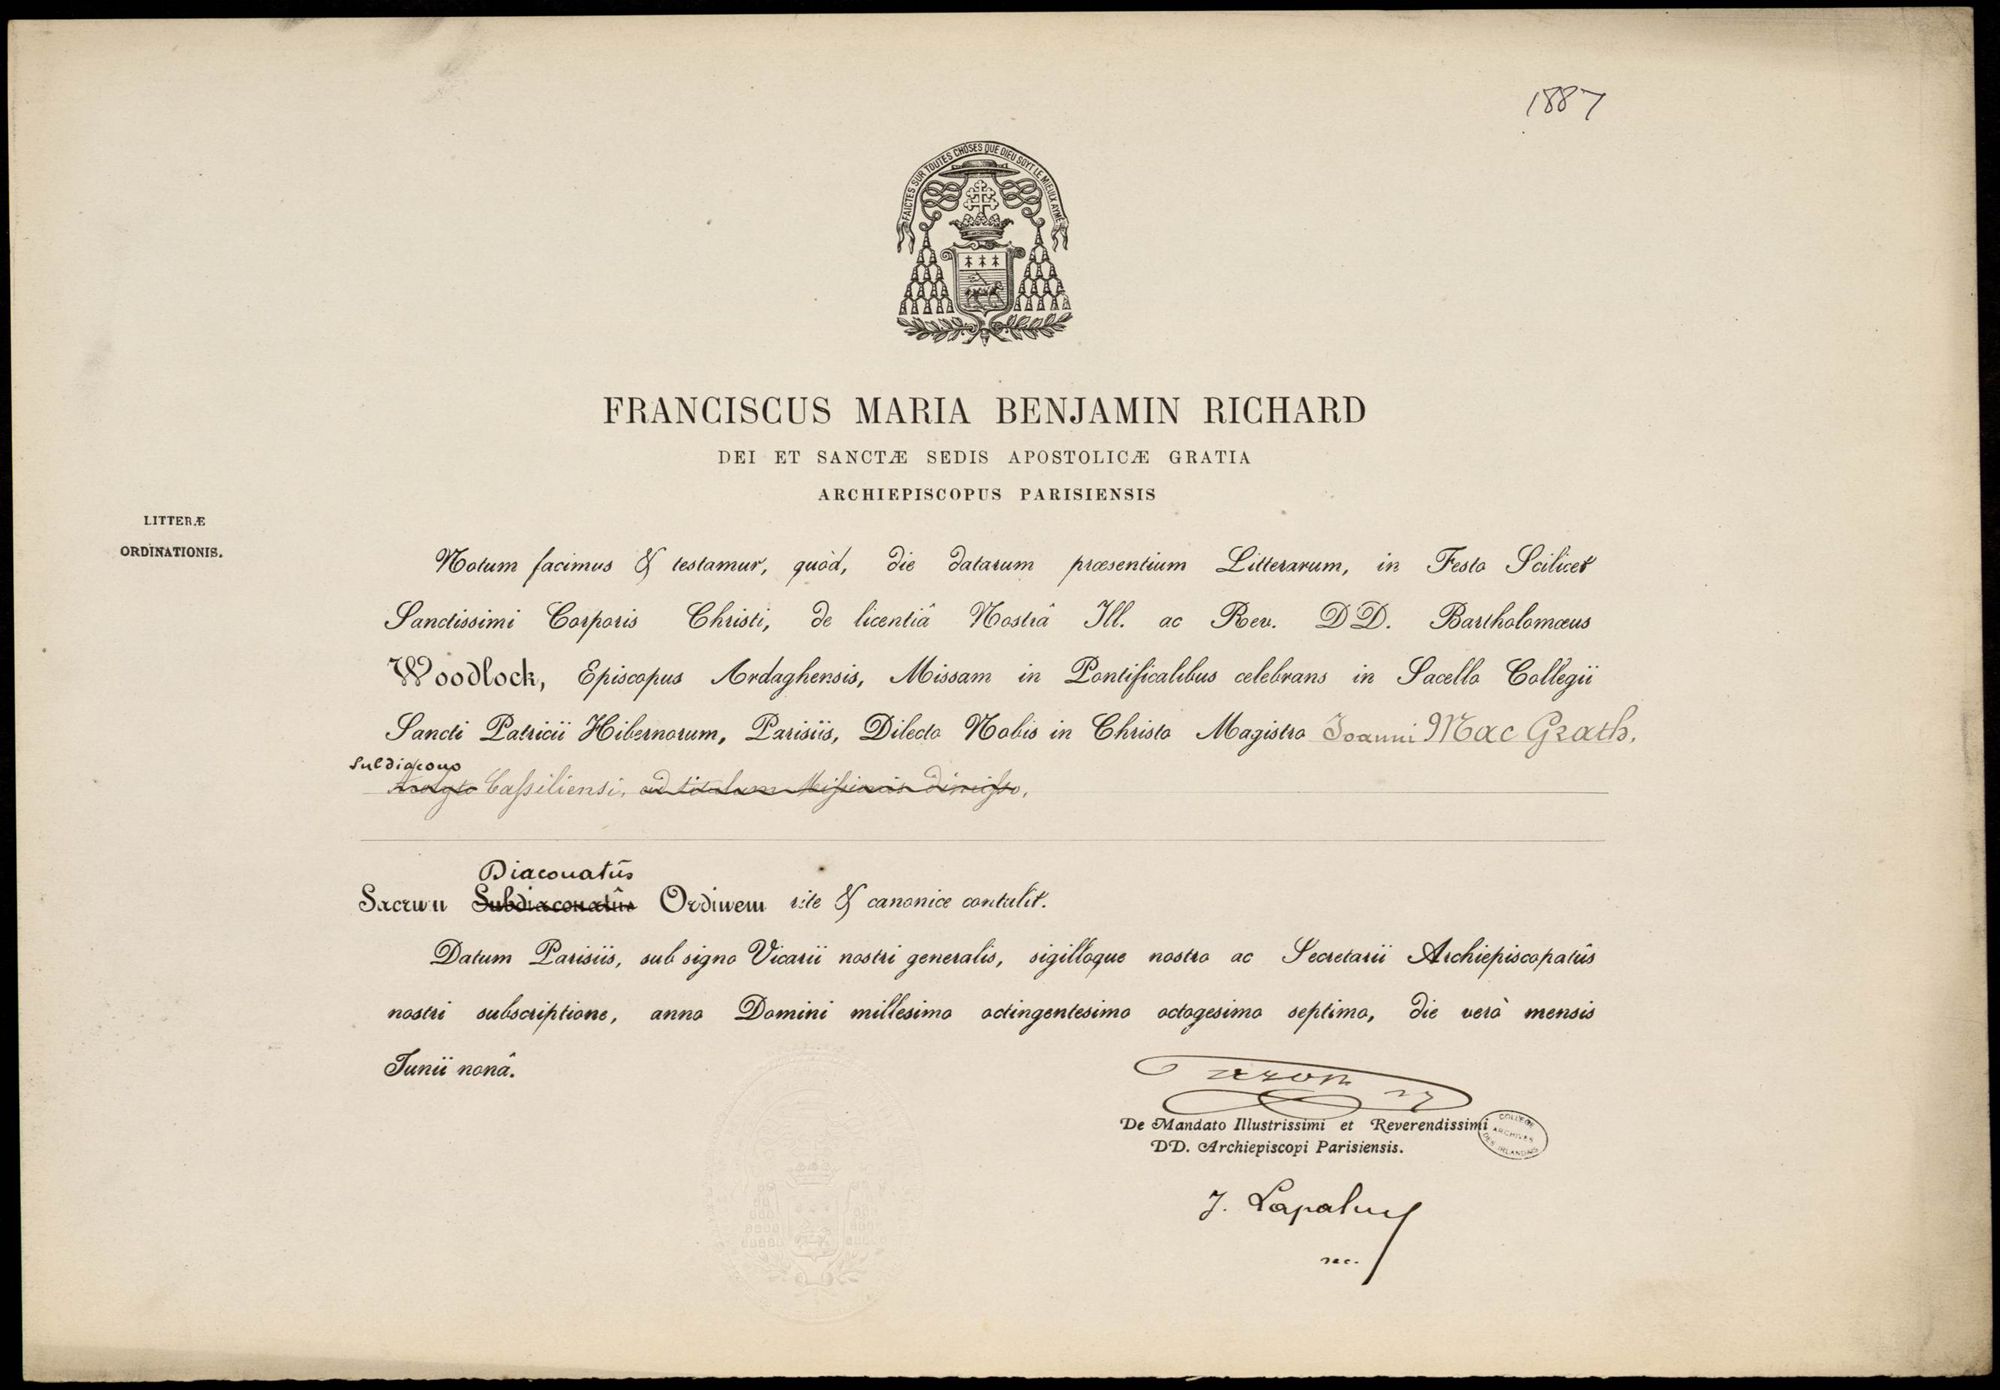 1887
FAICTES SUR TOUTES CHOSES QUE DIEU SOYT LE MIEULX AYMÉ
FRANCISCUS MARIA BENJAMIN RICHARD
DEI ET SANCTÆ SEDIS APOSTOLICÆ GRATIA
ARCHIEPISCOPUS PARISIENSIS
LITTERÆ
ORDINATIONIS.
Notum facimus & testamur, quòd, die datarum præsentium Litterarum, in Festo Scilicet
Sanctissimi Corporis Christi, de licentiâ Nostrâ Ill. ac Rev. DD. Bartholomæus
Woodlock, Episcopus Ardaghensis, Missam in Pontificalibus celebrans in Sacello Collegii
Sancti Patricii Hibernorum, Parisiis, Dilecto Nobis in Christo Magistro Joanni Mac Grath,
Subdiacono
Acolyto Cassiliensi, ad titulum Missionis dimisso,
Diaconatûs
Sacrum Subdiaconatûs Ordinem rite & canonice contulit.
Datum Parisiis, sub signo Vicarii nostri generalis, sigilloque nostro ac Secretarii Archiepiscopatûs
nostri subscriptione, anno Domini millesimo octingentesimo octogesimo septimo, die verò mensis
Junii nonâ.
De Mandato Illustrissimi et Reverendissimi
DD. Archiepiscopi Parisiensis.
COLLEGE
ARCHIVES
DES IRLANDAIS
J.
sec.